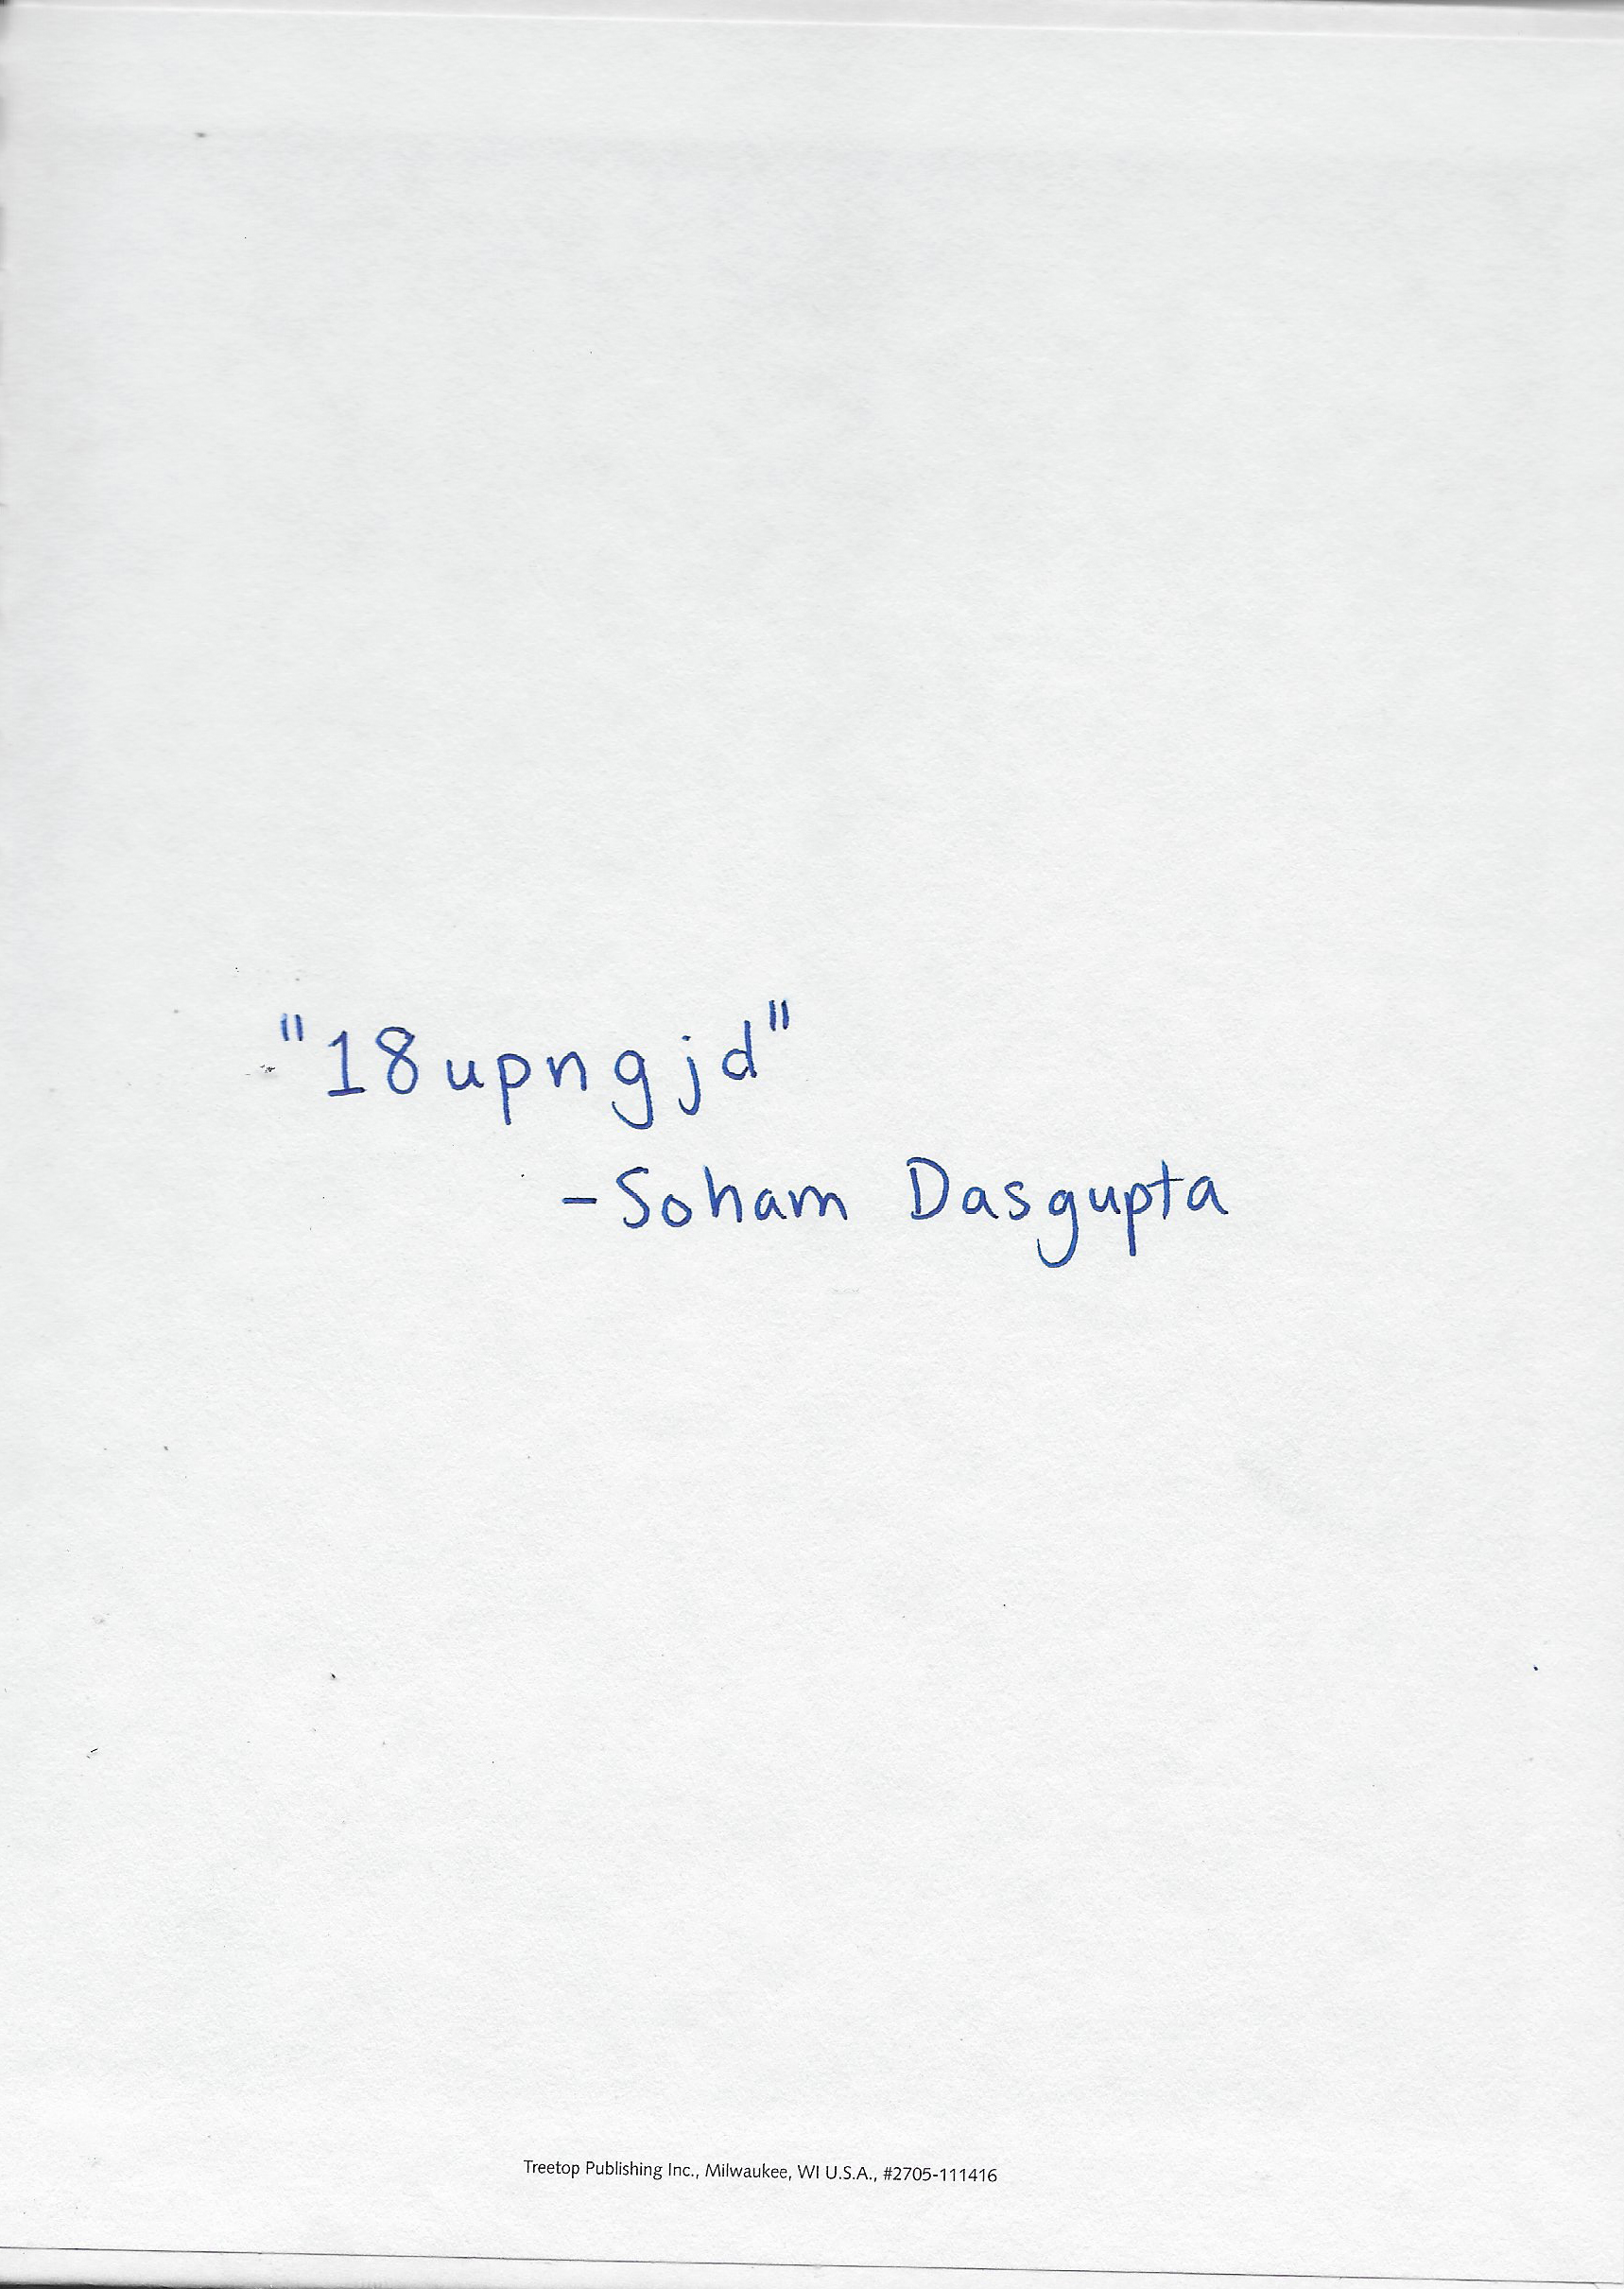 "18upngjd"
-Soham Dasgupta
Treetop Publishing Inc., Milwaukee, WI U.S.A., #2705-111416